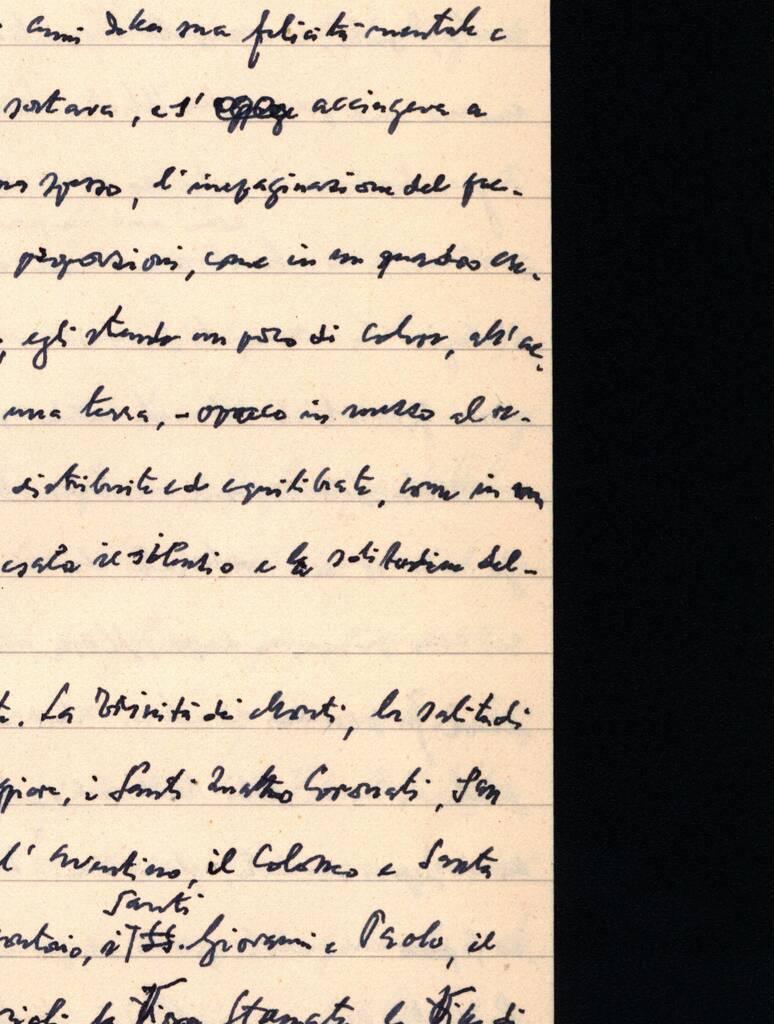 anni della sua felicità mentale e
sostava, e s' accingeva a
spesso, l'impaginazione del pae-
proporzioni, come in un quadro
egli stando un poco di color, all'
una terra, - opaco in mezzo al
distribuite ed equilibrate, come in un
il silenzio e la solitudine del-
La Trinità dei Monti, la salita di
i Santi Quattro Coronati, San
l'Aventino, il Colosseo e Santa
Santi
i SS. Giovanni e Paolo, il
la